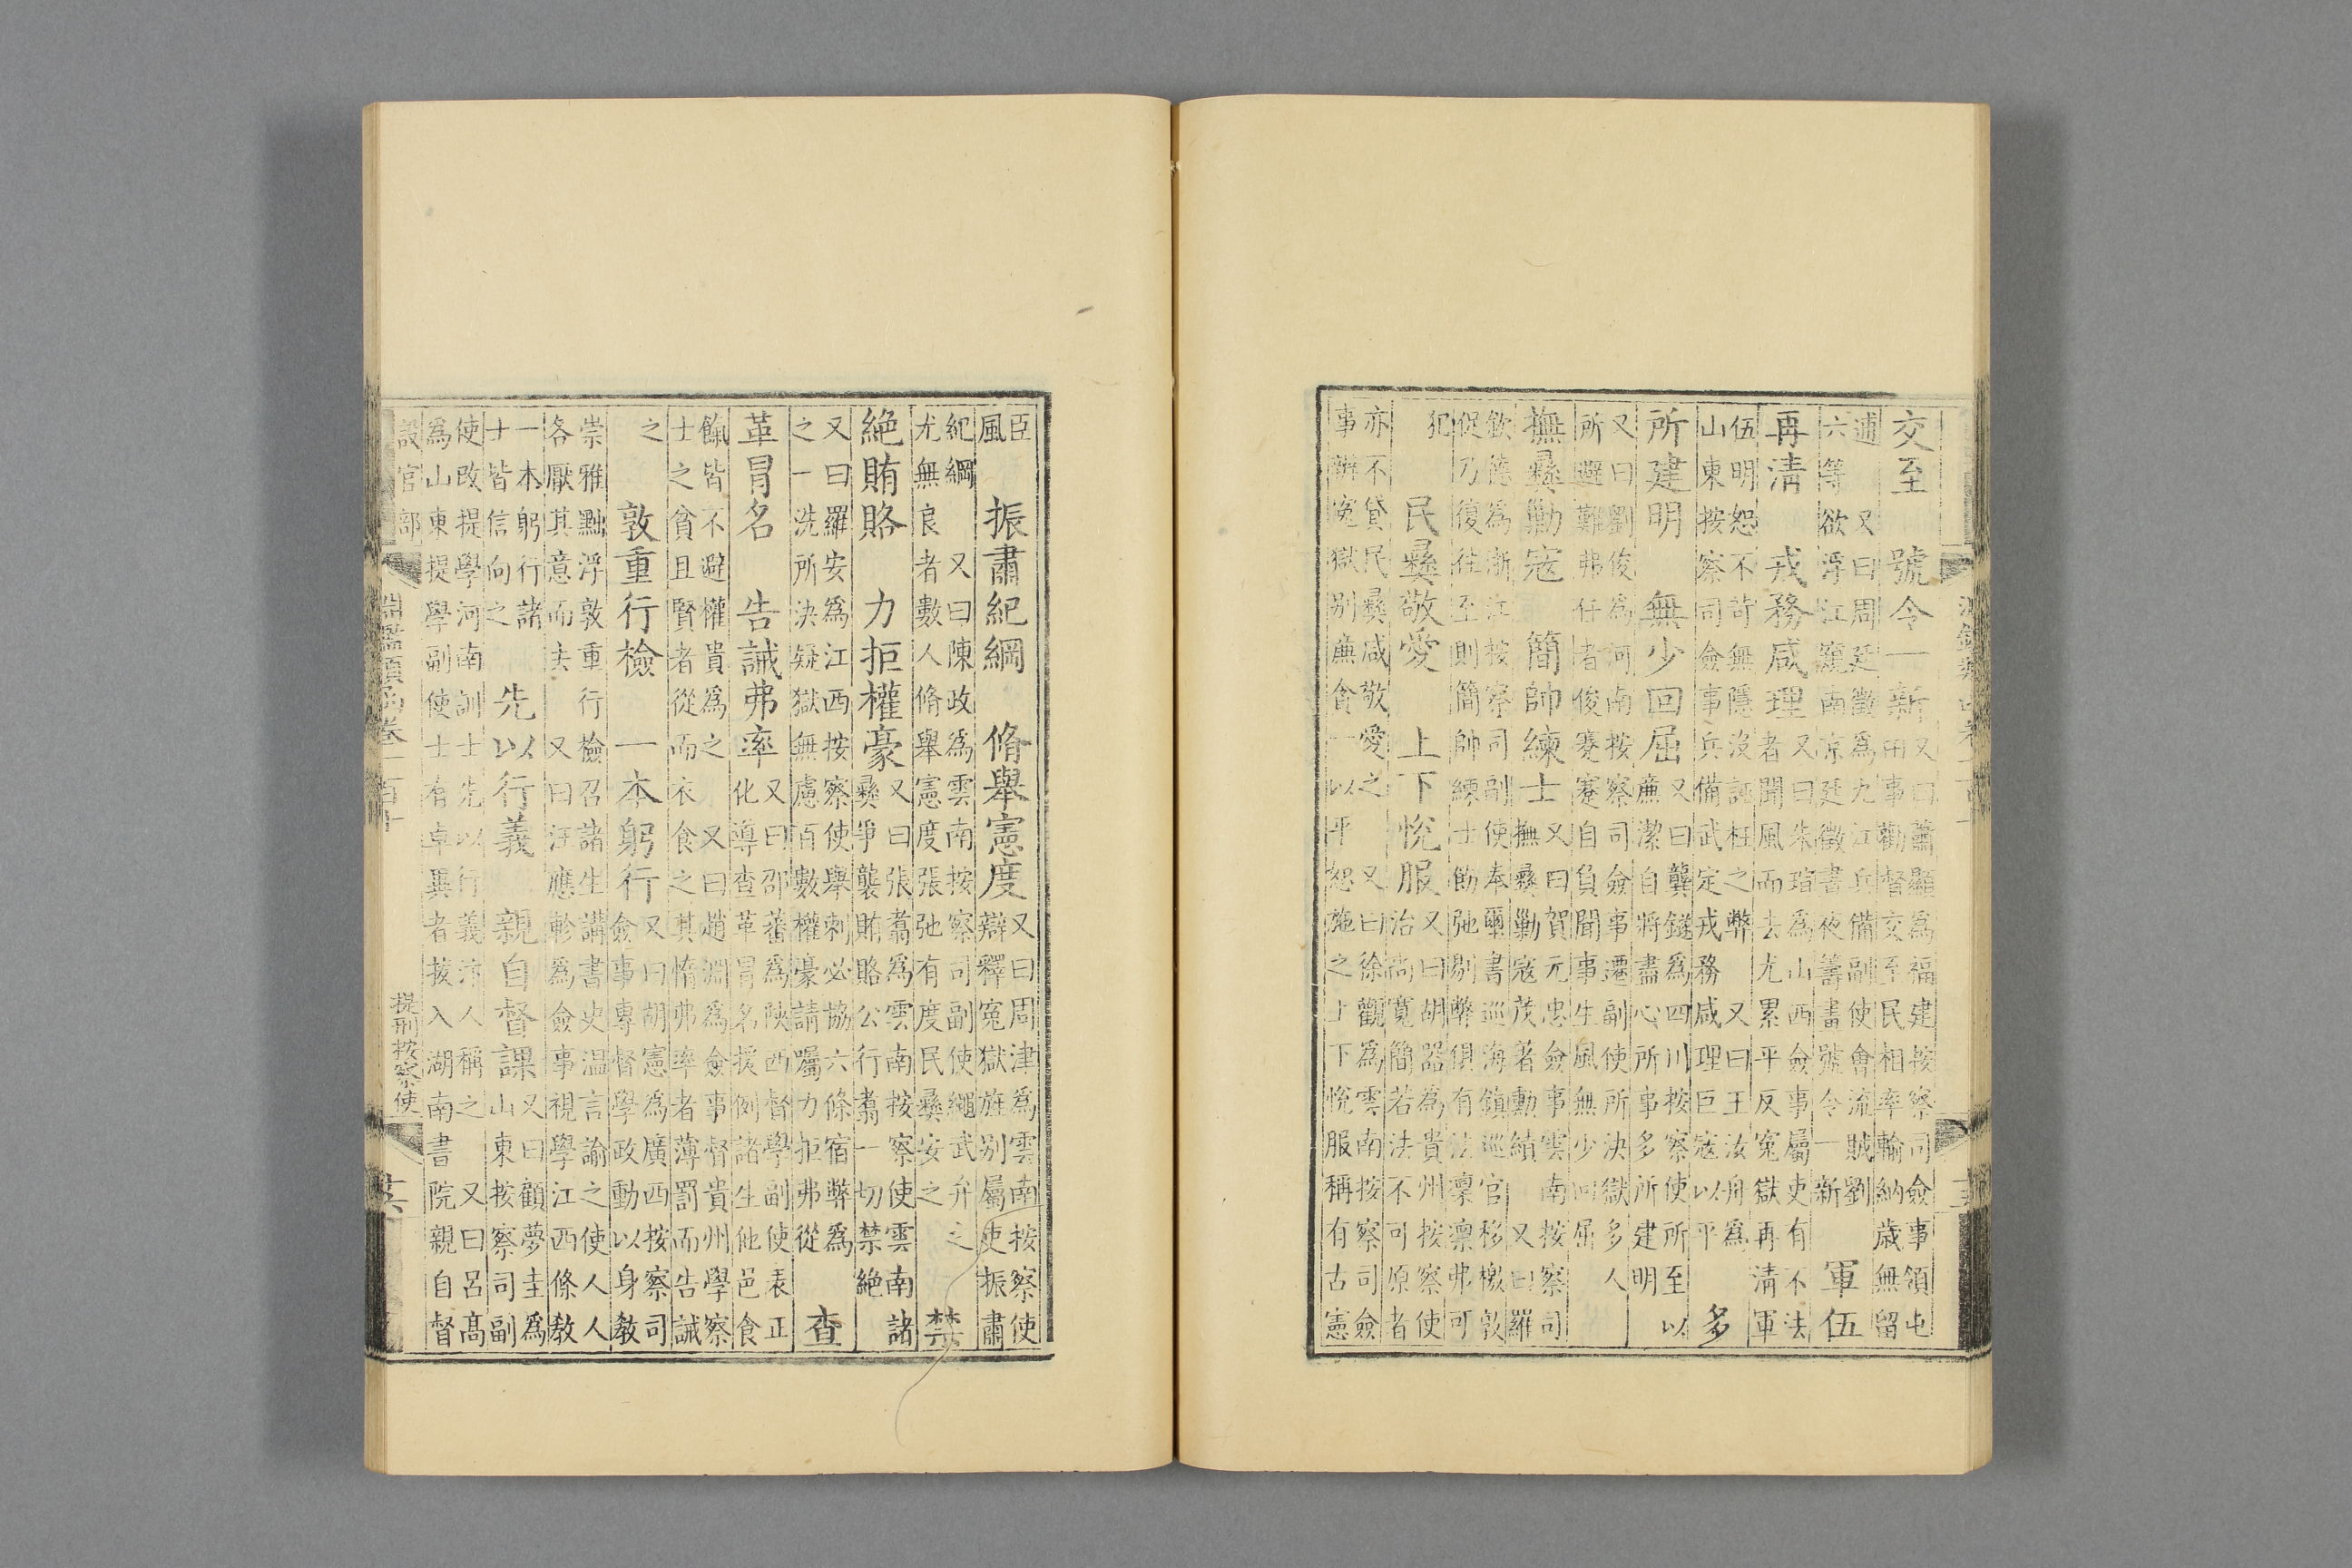 交至　號令一新　又曰蕭顯為福建按察司僉事領屯
田事勸督交至民相率輸納歲無留
逋　又曰周廷徵為九江兵備副使會流賊劉
六等欲浮江窺南京廷徵書夜籌畫號令一新　軍伍
再清　戎務咸理　又曰朱瑄為山西僉事屬吏有不法
者聞風而去尤累平反冤獄再清軍
伍明恕不苛無隱沒誣枉之弊　又曰王汝舟為
山東按察司僉事兵備武定戎務咸理巨寇以平　多
所建明　無少回屈　又曰龔鐩為四川按察使所至
廉潔自將盡心所事多所建明　以
又曰劉俊為河南按察司僉事遷副使所決獄多人
所避難弗任者俊蹇蹇自負聞事生風無少回屈
撫彝勦寇　簡帥練士　又曰賀元忠僉事雲南按察司
撫彝勦寇茂著勳績　又曰羅
欽德為浙江按察司副使奉璽書巡海鎮巡官移檄敦
促乃復往至則簡帥練士飭弛剔弊俱有法凜凜弗可
犯　民彝敬愛　上下悅服　又曰胡器為貴州按察使
治尚寬簡若法不可原者
亦不貸民彝咸敬愛之　又曰徐觀為雲南按察司僉
事辨冤獄別廉貪一以平恕施之上下悅服稱有古憲
臣風　振肅紀綱　脩舉憲度　又曰周津為雲南按察使
辯釋冤獄旌別屬吏振肅
紀綱　又曰陳政為雲南按察司副使繩武弁之
尤無良者數人脩舉憲度張弛有度民彝安之　禁
絶賄賂　力拒權豪　又曰張翥為雲南按察使雲南諸
彝爭襲賄賂公行翥一切禁絶
又曰羅安為江西按察使舉刺必協六條宿弊為
之一洗所決疑獄無慮百數權豪請囑力拒弗從　查
革冒名　告誡弗率　又曰邵蕃為陝西督學副使表正
化導查革冒名援例諸生他邑食
餼皆不避權貴為之　又曰趙淵為僉事督貴州學察
士之貧且賢者從而衣食之其惰弗率者薄罰而告誡
之　敦重行檢　一本躬行　又曰胡憲為廣西按察司
僉事專督學政動以身教
崇雅黜浮敦重行檢召諸生講書史溫言諭之使人人
各厭其意而去　又曰汪應軫為僉事視學江西條教
一本躬行諸
士皆信向之　先以行義　親自督課　又曰顧夢圭為
山東按察司副
使改提學河南訓士先以行義汴人稱之　又曰呂高
為山東提學副使士有卓異者拔入湖南書院親自督
設官部
提刑按察使